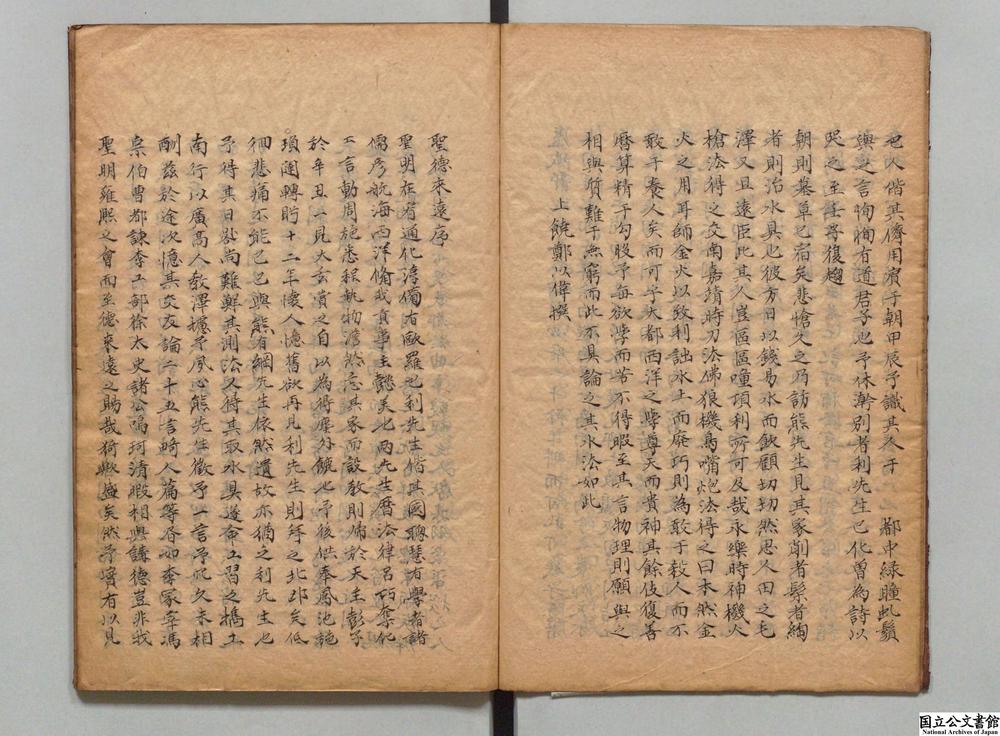 也以偕其儕用賓于朝甲辰予識其人于 都中綠瞳虬鬚
與之言恂恂有道君子也予休澣別者利先生已化曾為詩以
哭之至壬子復趨
朝則墓草已宿矣悲愴久之乃訪熊先生見其家削者髹者綯
者則治水具也彼方日以錢易水而飲顧切切然思人田之毛
澤又且遠臣此其人豈區區踵頂利所可及哉永樂時神機火
槍法得之交南嘉靖時刀法佛狼機鳥嘴炮法得之日本然金
火之用耳師金火以致利詘水土而廢巧則為敢于殺人而不
敢于養人矣而可乎大都西洋之學尊天而貴神其餘伎復善
曆算精于勾股予每欲學而苦不得暇至其言物理則願與之
相與質難于無窮而此不具論之其水法如此
上饒鄭以偉撰
聖德來遠序
聖明在宥通化滂備有歐羅巴利先生偕其國聰慧有學者諸
儒彥航海西洋脩我貢事主懿美北兩先生曆法律呂巧奪化
工言動周旋悉程執物澹然忘其家而設教則嫥於天主彭子
於辛丑一見太玄之自以為得塵外也予後供奉鳳池旋
瑣闥轉盻十二年懷人憶舊欲再見利先生則拜之北邙矣低
徊悲痛不能已已與熊有綱先生依然遺故亦猶之利先生也
予得其日晷尚難解其測法又得其取水具遂命工習之攜工
南行以廣高人教澤攄予夙心熊先生徵予一言予久未相
酬茲於途次憶其交友論二十五言畸人篇等如李冢宰馮
宗伯曹都諫李工部徐太史諸公鳴珂清暇相與講德豈非我
聖明雍熙之會而至德來遠之賜哉猗歟盛矣然予實有以見
国立公文書館
National Archives of Japan